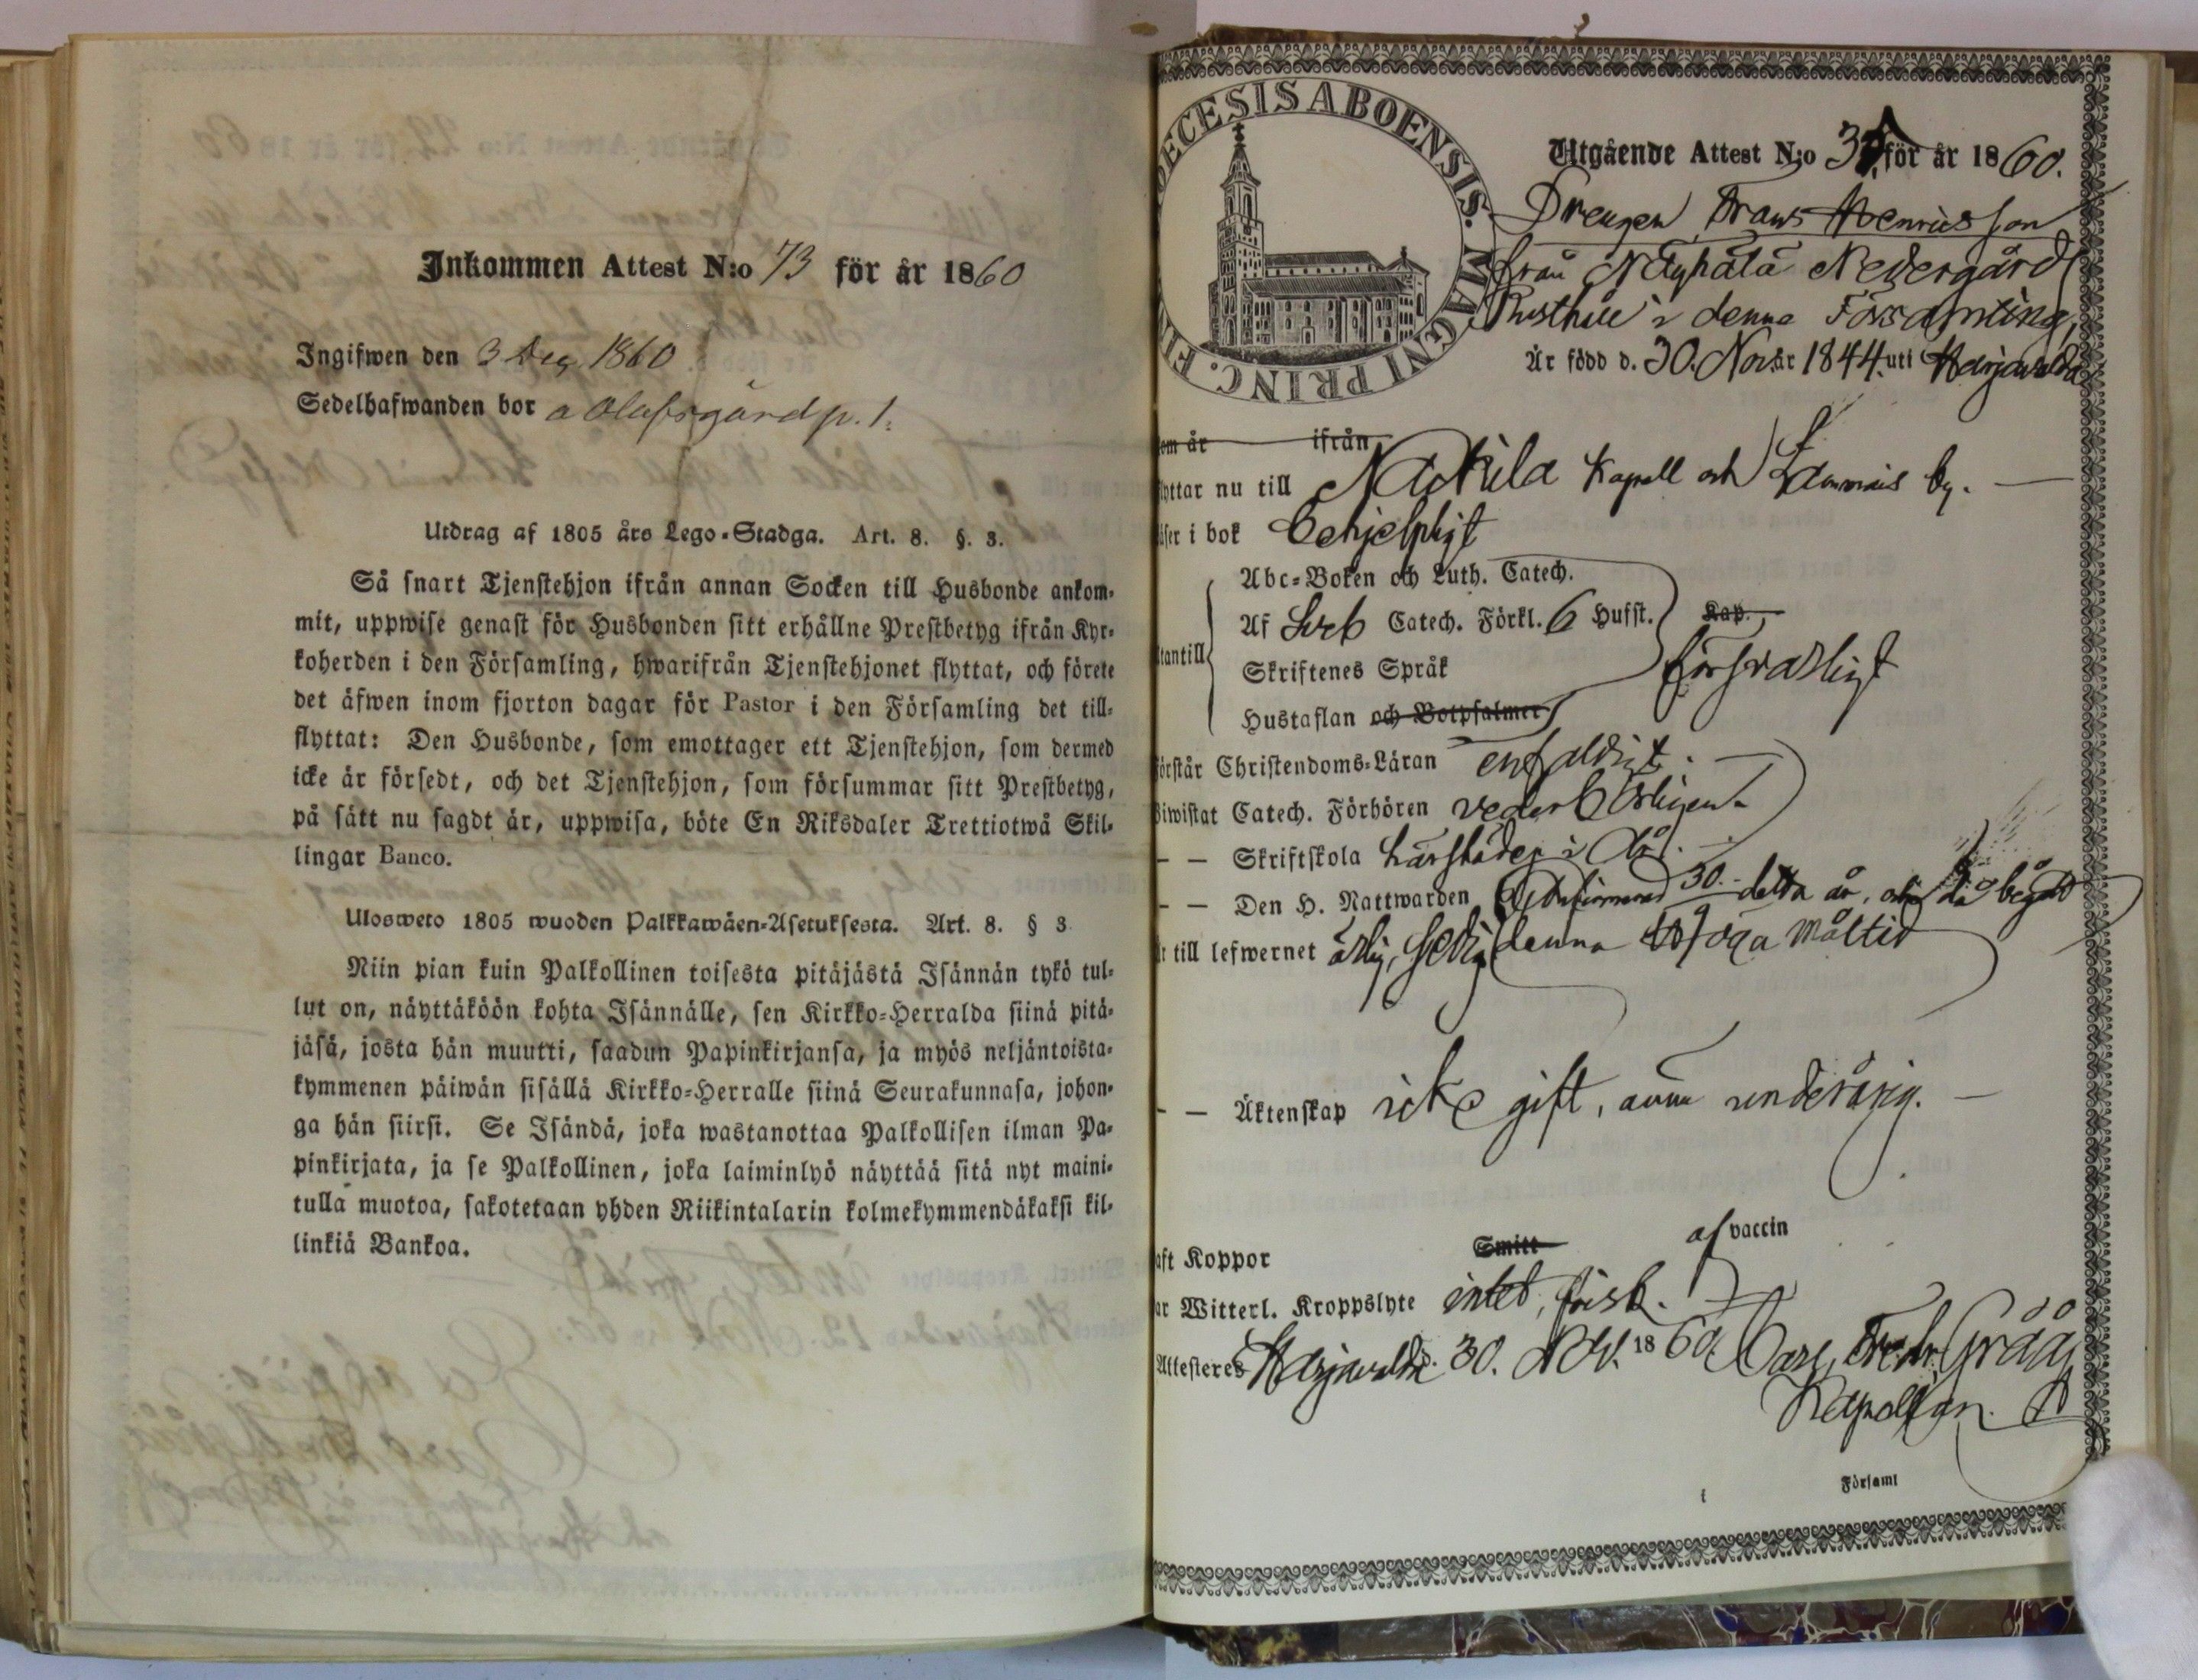 Inkommen Attest N:o 73 för år 1860
Ingifwen den 3 Dec 1860
Sedelhafwanden bor a Olafsgård p. 1.
Utdrag af 1805 års Lego-Stadga. Art. 8. §. 3.
Så snart Tjenstehjon ifrån annan Socken till Husbonde ankom-
mit, uppwise genast för Husbonden sitt erhållne Prestbetyg ifrån Kyr-
koherden i den Församling, hwarifrån Tjenstehjonet flyttat, och förete
det äfwen inom fjorton dagar för Pastor i den Församling det till-
flyttat: Den Husbonde, som emottager ett Tjenstehjon, som dermed
icke är försedt, och det Tjenstehjon, som försummar sitt Prestbetyg,
på sätt nu sagdt är, uppwisa, böte En Riksdaler Trettiotwå Skil-
lingar Banco.
Ulosweto 1805 wuoden Palkkawäen-Asetuksesta. Art. 8. § 3
Niin pian kuin Palkollinen toisesta pitäjästä Isännän tykö tul-
lut on, näyttäköön kohta Isännälle, sen Kirkko-Herralda siinä pitä-
jäsä, josta hän muutti, saadun Papinkirjansa, ja myös neljäntoista-
kymmenen päiwän sisällä Kirkko-Herralle siinä Seurakunnasa, johon-
ga hän siirsi. Se Isändä, joka wastanottaa Palkollisen ilman Pa-
pinkirjata, ja se Palkollinen, joka laiminlyö näyttää sitä nyt maini-
tulla muotoa, sakotetaan yhden Riikintalarin kolmekymmendäkaksi kil-
linkiä Bankoa.
ECESIS ABOENSIS. MAGNI PRINC. FI
Utgående Attest N:o för år 1860.
Drengen Frans Henricsson
från Näyhälä Nedergård
Rusthåll i denna Församling,
Är född d. 30. Nov. år 1844. uti Harjavalda
om år ifrån
yttar nu till Nackila Kapell och by.
äser i bok behjelpligt
Abc-Boken och Luth. Catech.
Af Sveb Catech. Förkl. 6 Hufst. Kap.
tantill försvarligt
Skriftenes Språk
Hustaflan och Botpsalmer
örstår Christendoms-Läran enfaldigt.
Biwistat Catech. Förhören vederbörligen
— — Skriftskola härstädes i då.
— — Den H. Nattwarden 30. detta år, och då begått
t till lefwernet ärlig, sedig denna höga måltid
— — Äktenskap icke gift, ännu underårig.
aft Koppor Smitt af vaccin
ar Witterl. Kroppslyte intet, frisk.
Attesteres Harjavalda d. 30. Nov. 1860. Carl Fredr. Gråå
Kapellan.
i Församl